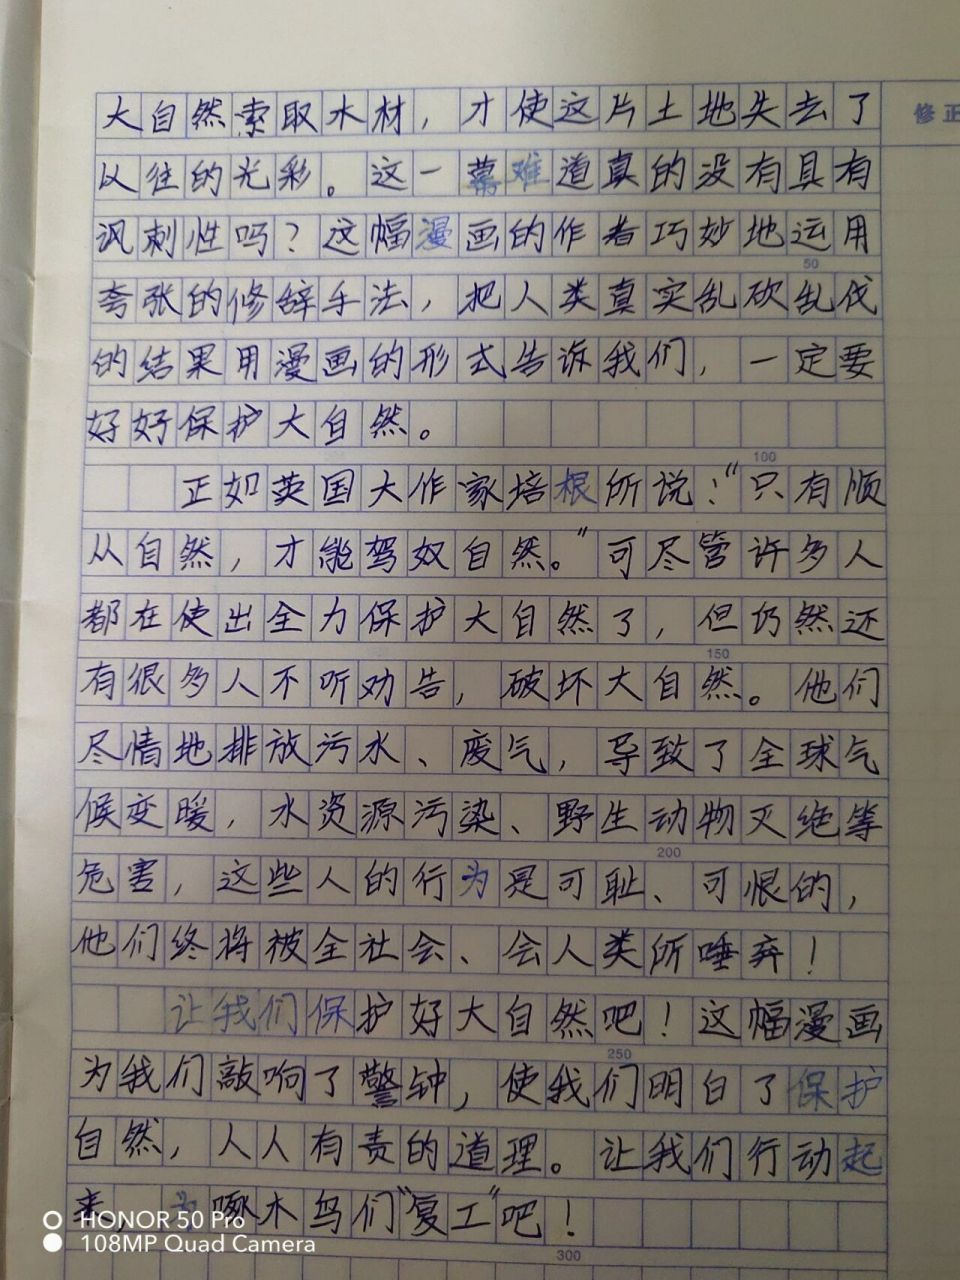 大自然索取木材，才使这片土地失去了
修正
以往的光彩。这一幕难道真的没有具有
讽刺性吗？这幅漫画的作者巧妙地运用
50
夸张的修辞手法，把人类真实乱砍乱伐
的结果用漫画的形式告诉我们，一定要
好好保护大自然。
100
正如英国大作家培根所说：“只有顺
从自然，才能驾奴自然。”可尽管许多人
都在使出全力保护大自然了，但仍然还
150
有很多人不听劝告，破坏大自然。他们
尽情地排放污水、废气，导致了全球气
候变暖，水资源污染、野生动物灭绝等
200
危害，这些人的行为是可耻、可恨的，
他们终将被全社会、会人类所唾弃！
让我们保护好大自然吧！这幅漫画
250
为我们敲响了警钟，使我们明白了保护
自然，人人有责的道理。让我们行动起
来，为啄木鸟们“复工”吧！
300
HONOR 50 Pro
108MP Quad Camera